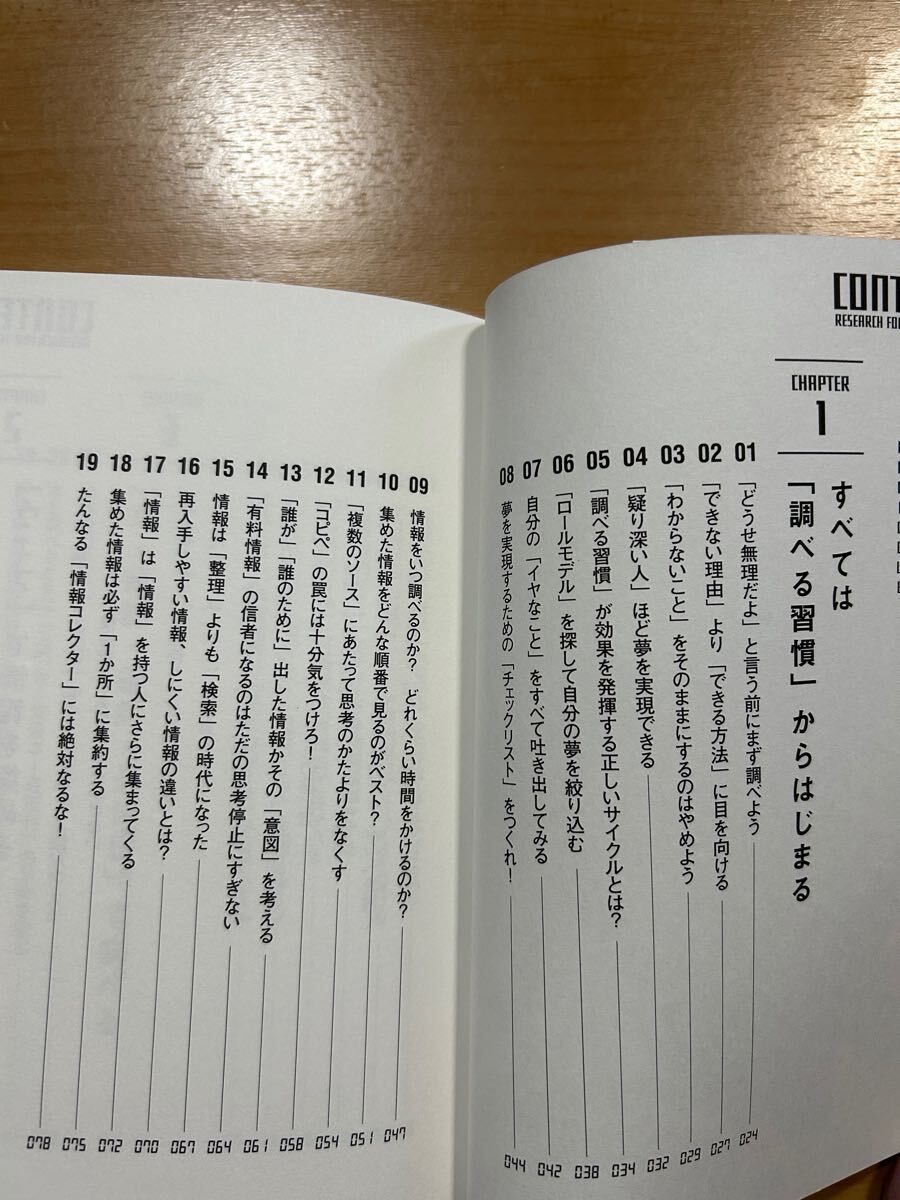 CONT
RESEARCH FO
CHAPTER
1
すべては
「調べる習慣」からはじまる
01 「どうせ無理だよ」と言う前にまず調べよう 024
02 「できない理由」より「できる方法」に目を向ける 027
03 「わからないこと」をそのままにするのはやめよう 029
04 「疑り深い人」ほど夢を実現できる 032
05 「調べる習慣」が効果を発揮する正しいサイクルとは？ 034
06 「ロールモデル」を探して自分の夢を絞り込む 038
07 自分の「イヤなこと」をすべて吐き出してみる 042
08 夢を実現するための「チェックリスト」をつくれ！ 044
09 情報をいつ調べるのか？ どれくらい時間をかけるのか？ 047
10 集めた情報をどんな順番で見るのがベスト？ 051
11 「複数のソース」にあたって思考のかたよりをなくす 054
12 「コピペ」の罠には十分気をつけろ！ 058
13 「誰が」「誰のために」出した情報かその「意図」を考える 061
14 「有料情報」の信者になるのはただの思考停止にすぎない 064
15 情報は「整理」よりも「検索」の時代になった 067
16 再入手しやすい情報、しにくい情報の違いとは？ 070
17 「情報」は「情報」を持つ人にさらに集まってくる 072
18 集めた情報は必ず「1か所」に集約する 075
19 たんなる「情報コレクター」には絶対なるな！ 078